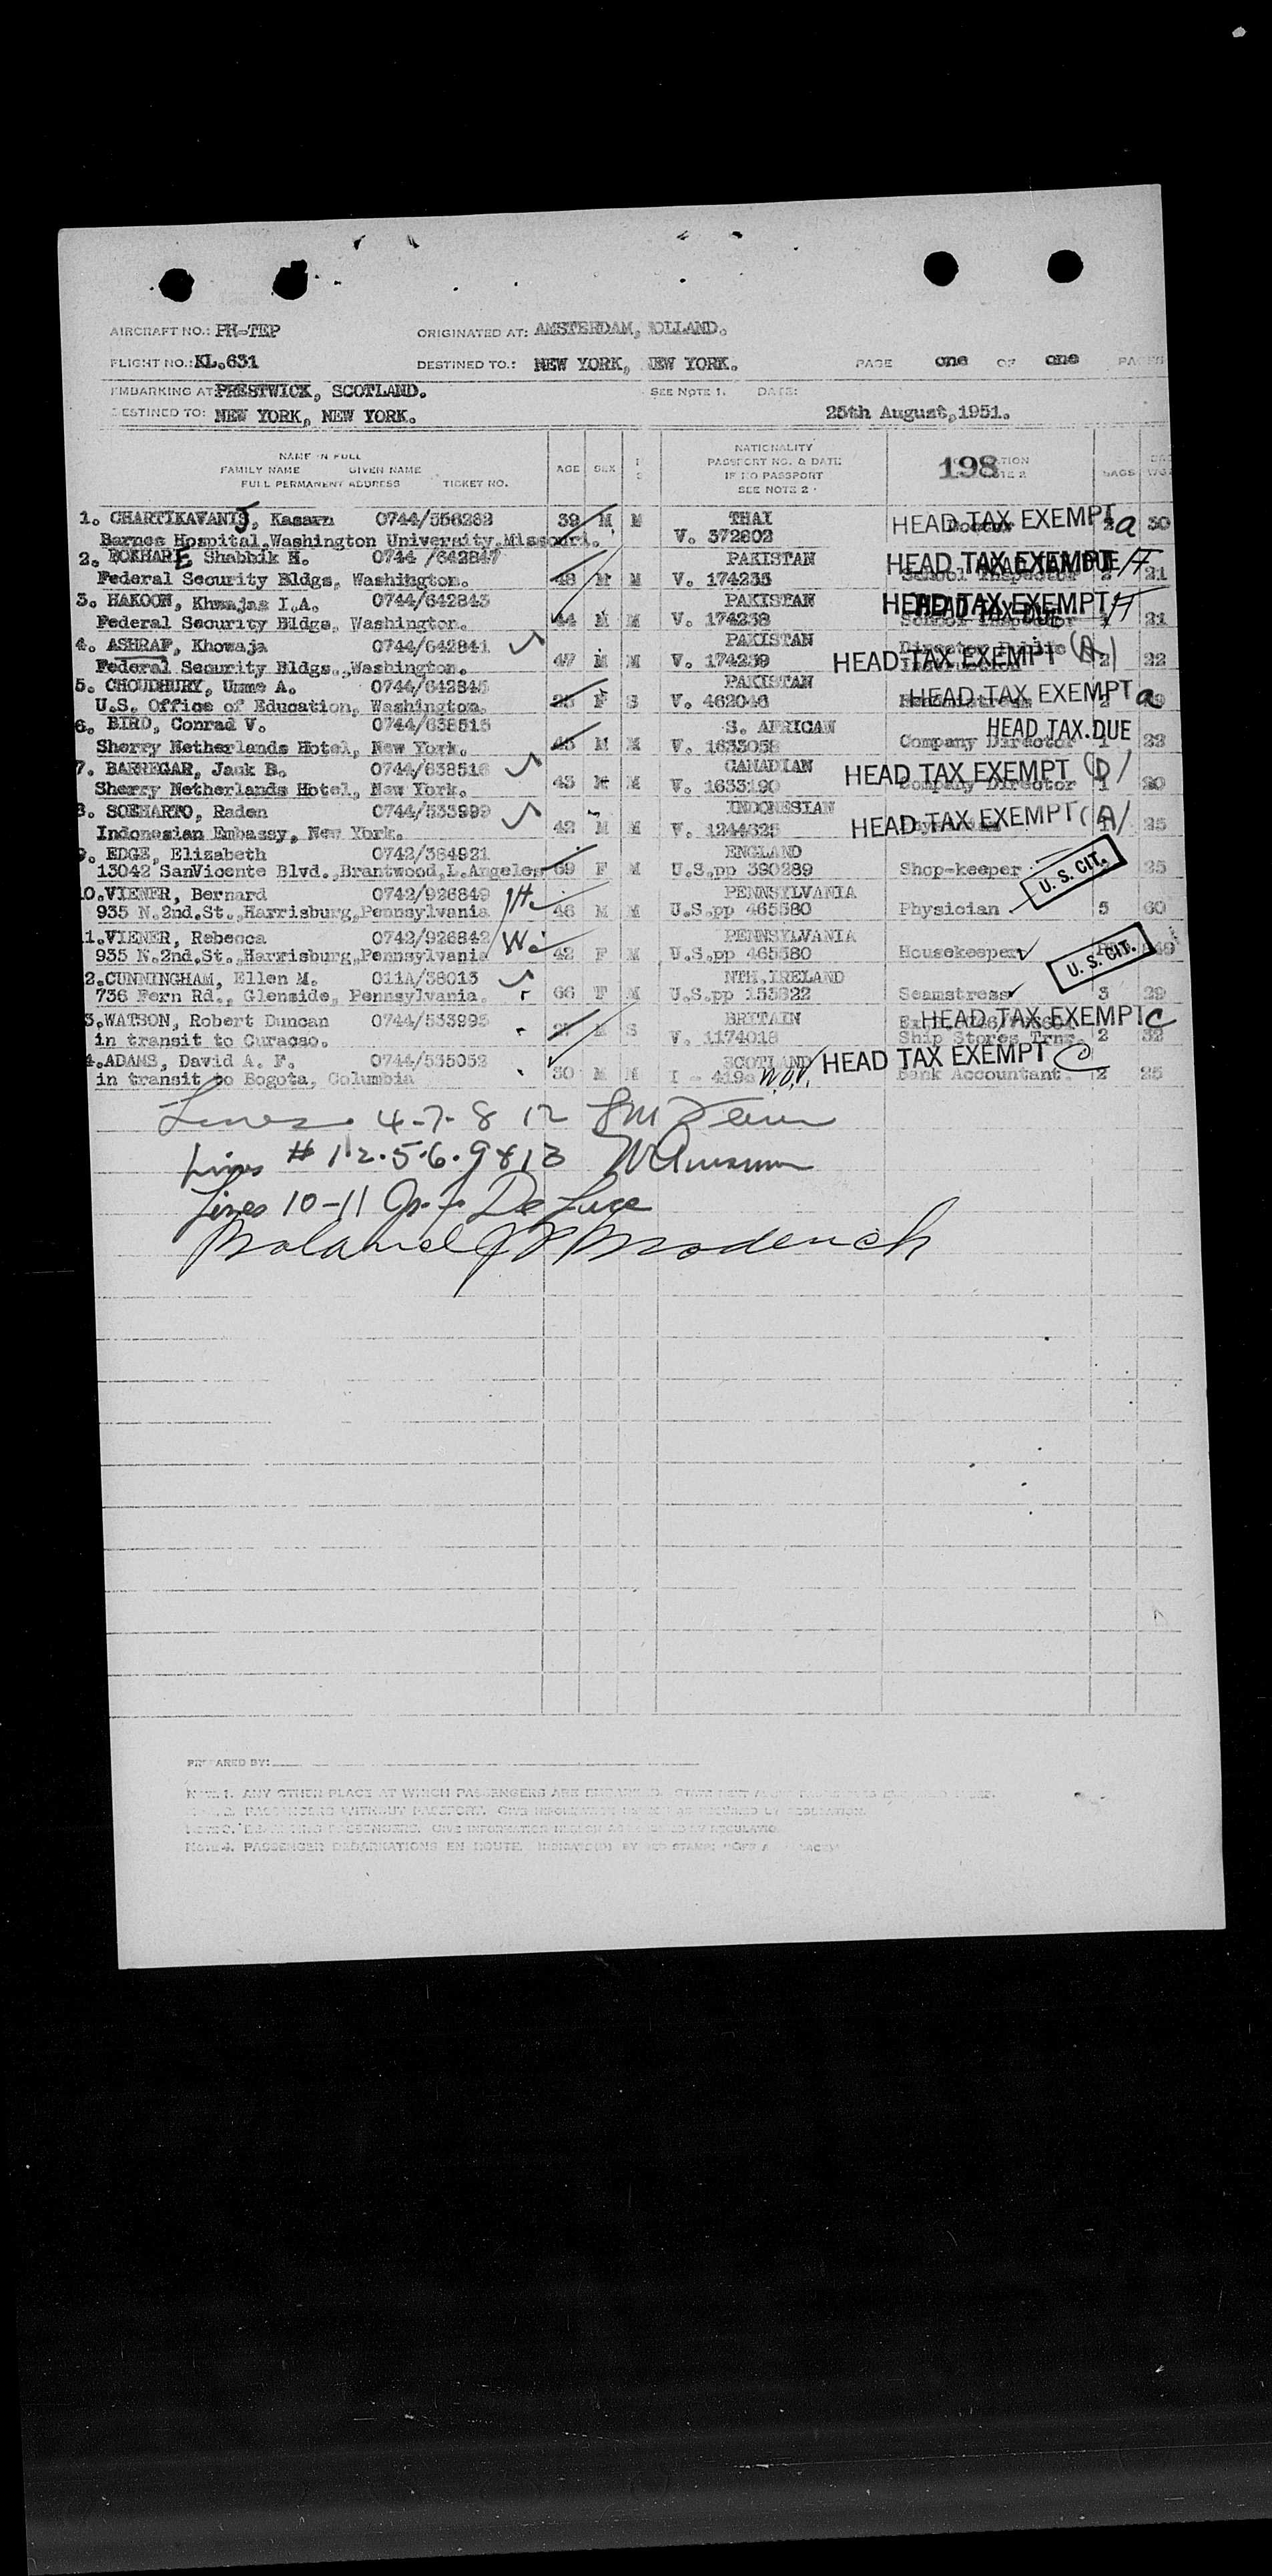 AIRCRAFT NO.: PH-TEP ORIGINATED AT: AMSTERDAM, HOLLAND.
FLIGHT NO.: KL.631 DESTINED TO.: NEW YORK, NEW YORK. PAGE one OF one PAGES
EMBARKING AT: PRESTWICK, SCOTLAND. SEE NOTE 1. DATE:
DESTINED TO: NEW YORK, NEW YORK. 25th August,1951.
NAME IN FULL
FAMILY NAME GIVEN NAME
FULL PERMANENT ADDRESS TICKET NO.
AGE SEX
NATIONALITY
PASSPORT NO. & DATE
IF NO PASSPORT
SEE NOTE 2
198
BAGS
1. CHARTIKAVANIJ, Kasarn 0744/556282 39 M M THAI HEAD TAX EXEMPT a 30
Barnes Hospital,Washington University,Missouri. V. 372802
2. BOKHARE Shabbik H. 0744 /642847 PAKISTAN HEAD TAX EXEMPT
Federal Security Bldgs, Washington. 48 M M V. 174235 School Inspector 2 21
3. HAKOON, Khwajas I.A. 0744/642843 PAKISTAN HEAD TAX EXEMPT
Federal Security Bldgs, Washington. 44 M M V. 174238 School Inspector 21
4. ASHRAF, Khowaja 0744/642841 PAKISTAN Director Public
Federal Security Bldgs.,Washington. 47 M M V. 174239 HEAD TAX EXEMPT (A) 2 22
5. CHOUDHURY, Umme A. 0744/642845 PAKISTAN HEAD TAX EXEMPT a
U.S. Office of Education, Washington. F S V. 462046 2
6. BIRD, Conrad V. 0744/638515 S. AFRICAN HEAD TAX DUE
Sherry Netherlands Hotel, New York. 45 M M V. 1633058 Company Director 1 23
7. BARREGAR, Jack B. 0744/638516 CANADIAN HEAD TAX EXEMPT (D)
Sherry Netherlands Hotel, New York. 43 M M V. 1633190 Company Director 1 20
8. SOEHARTO, Raden 0744/533999 INDONESIAN HEAD TAX EXEMPT (A)
Indonesian Embassy, New York. 42 M M V. 1244625 25
9. EDGE, Elizabeth 0742/384921 ENGLAND
13042 SanVicente Blvd.,Brantwood,L.Angeles 69 F M U.S.pp 390289 Shop-keeper U. S. CIT. 35
10.VIENER, Bernard 0742/926849 PENNSYLVANIA
935 N.2nd.St.,Harrisburg,Pennsylvania 46 M M U.S.pp 465580 Physician 5 60
11.VIENER, Rebecca 0742/926842 PENNSYLVANIA
935 N.2nd.St.,Harrisburg,Pennsylvania 42 F M U.S.pp 465580 Housekeeper U. S. CIT.
12.CUNNINGHAM, Ellen M. 011A/38013 NTH.IRELAND
736 Fern Rd., Glenside, Pennsylvania. 66 F M U.S.pp 153622 Seamstress 3 29
13.WATSON, Robert Duncan 0744/533995 BRITAIN HEAD TAX EXEMPT C
in transit to Curacao. S V. 1174018 Ship Stores Trnr. 2 32
14.ADAMS, David A. F. 0744/535052 SCOTLAND HEAD TAX EXEMPT C
in transit to Bogota, Columbia 30 M M Bank Accountant. 2 25
Lines 4-7-8 12
Lines # 1 2.5.6.9 & 13
Lines 10-11 De Luce
PREPARED BY:
NOTE 1. ANY OTHER PLACE AT WHICH PASSENGERS ARE EMBARKED.
NOTE 2. PASSENGERS WITHOUT PASSPORT. GIVE
NOTE 4. PASSENGER DEBARKATIONS EN ROUTE.